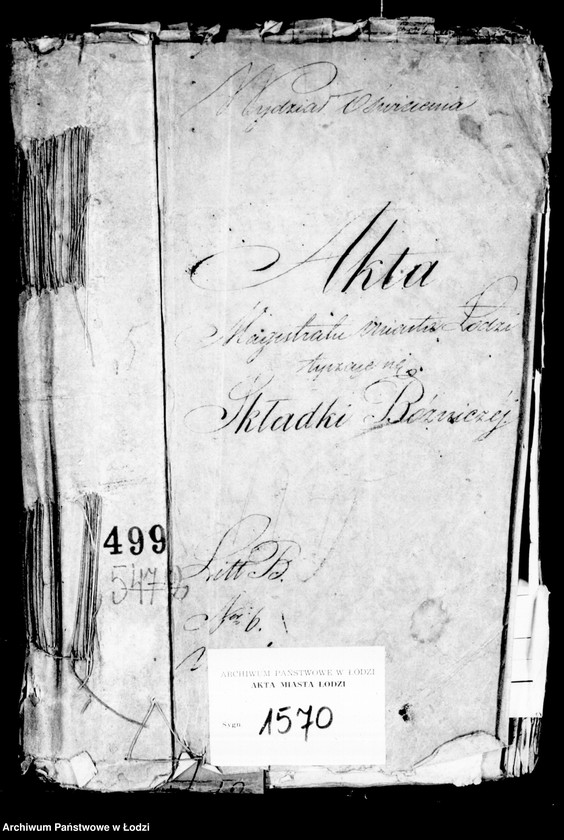 Wydział Oświecenia
Akta
Magistratu Miasta Łodzi
tyczące się
Składki Bóżniczéj
499
547
Litt B.
Nro 6.
ARCHIWUM PAŃSTWOWE W ŁODZI
AKTA MIASTA ŁODZI
Sygn. 1570
Archiwum Państwowe w Łodzi
Archiwum Państwowe w Łodzi